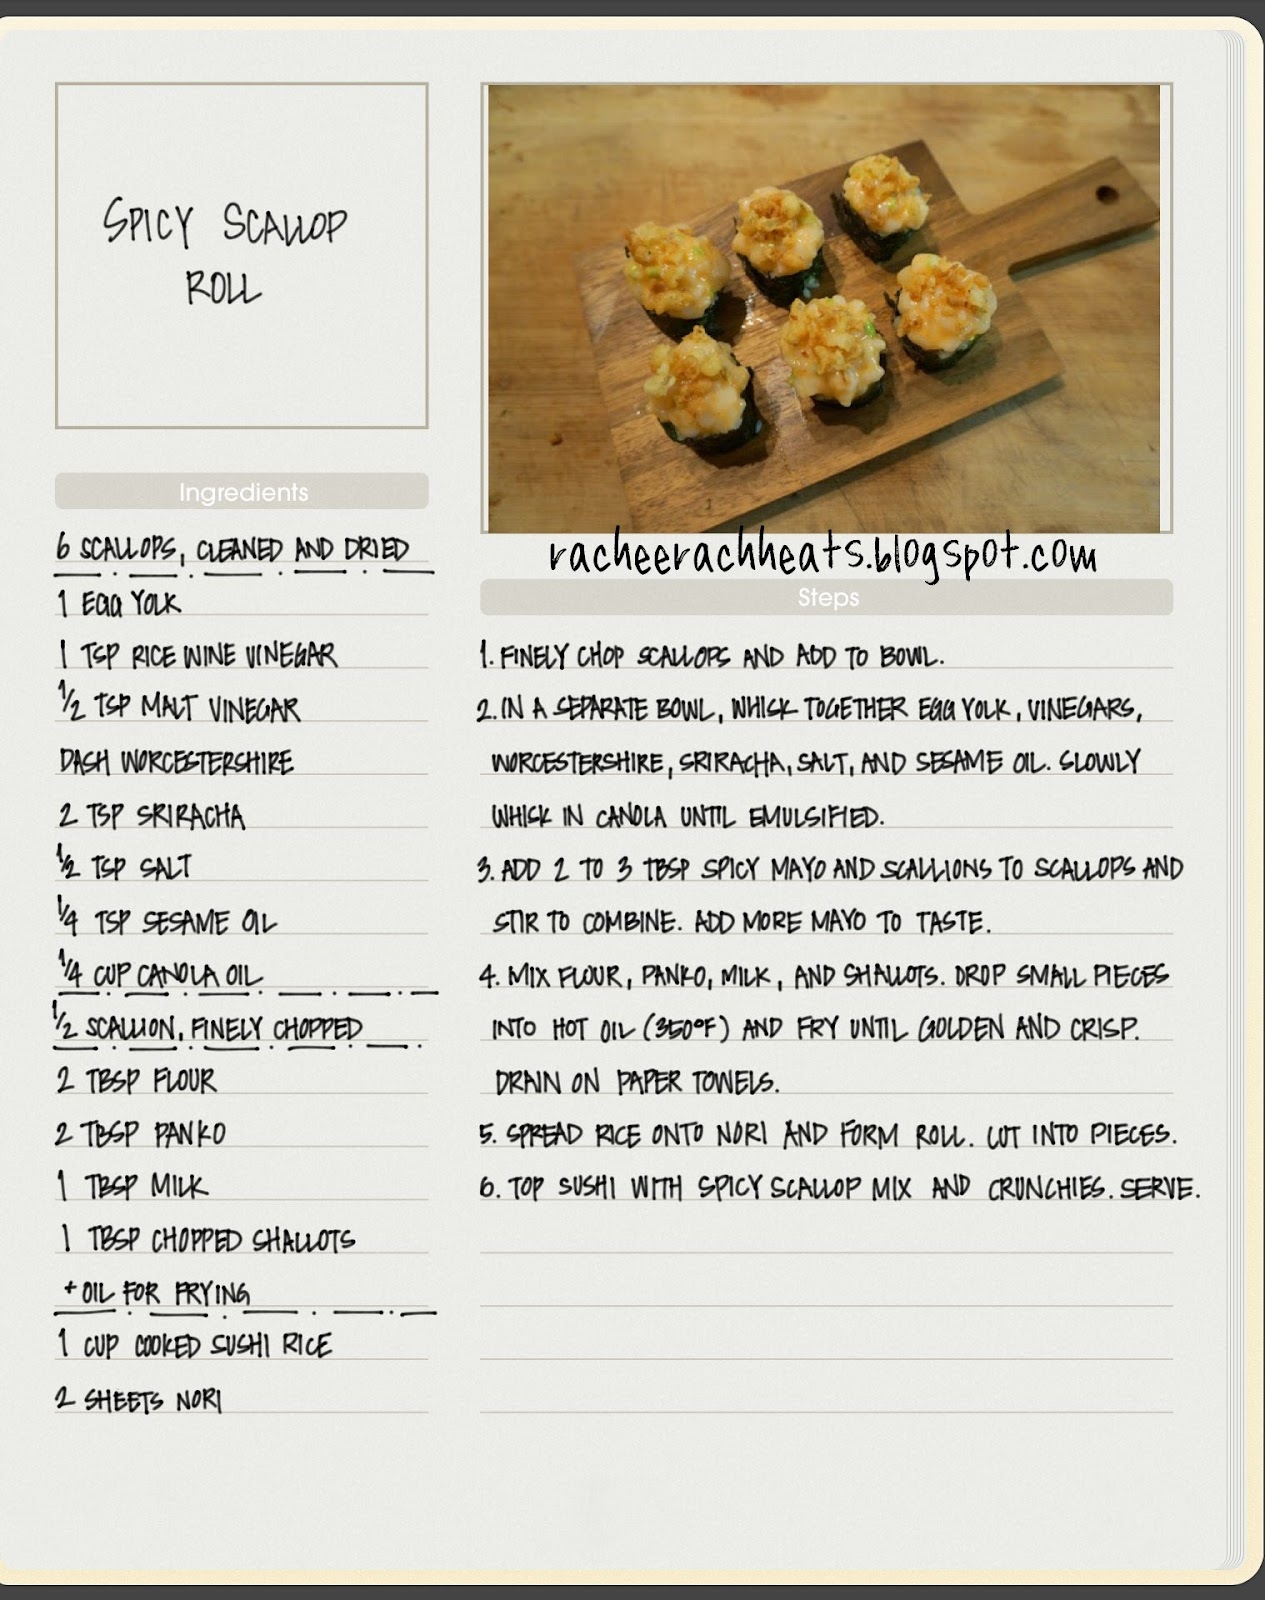 SPICY SCALLOP
ROLL
Ingredients
6 SCALLOPS, CLEANED AND DRIED
1 EGG YOLK
1 TSP RICE WINE VINEGAR
1/2 TSP MALT VINEGAR
DASH WORCESTERSHIRE
2 TSP SRIRACHA
1/2 TSP SALT
1/4 TSP SESAME OIL
1/4 CUP CANOLA OIL
1/2 SCALLION, FINELY CHOPPED
2 TBSP FLOUR
2 TBSP PANKO
1 TBSP MILK
1 TBSP CHOPPED SHALLOTS
+ OIL FOR FRYING
1 CUP COOKED SUSHI RICE
2 SHEETS NORI
racheerachheats.blogspot.com
Steps
1. FINELY CHOP SCALLOPS AND ADD TO BOWL.
2. IN A SEPARATE BOWL, WHISK TOGETHER EGG YOLK, VINEGARS,
WORCESTERSHIRE, SRIRACHA, SALT, AND SESAME OIL. SLOWLY
WHISK IN CANOLA UNTIL EMULSIFIED.
3. ADD 2 TO 3 TBSP SPICY MAYO AND SCALLIONS TO SCALLOPS AND
STIR TO COMBINE. ADD MORE MAYO TO TASTE.
4. MIX FLOUR, PANKO, MILK, AND SHALLOTS. DROP SMALL PIECES
INTO HOT OIL (350°F) AND FRY UNTIL GOLDEN AND CRISP.
DRAIN ON PAPER TOWELS.
5. SPREAD RICE ONTO NORI AND FORM ROLL. CUT INTO PIECES.
6. TOP SUSHI WITH SPICY SCALLOP MIX AND CRUNCHIES. SERVE.